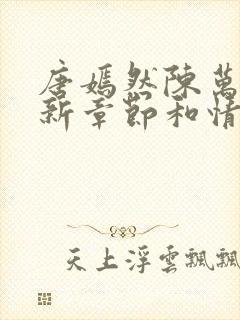 唐嫣然陳萬
新章節和情
天上浮雲飄飄